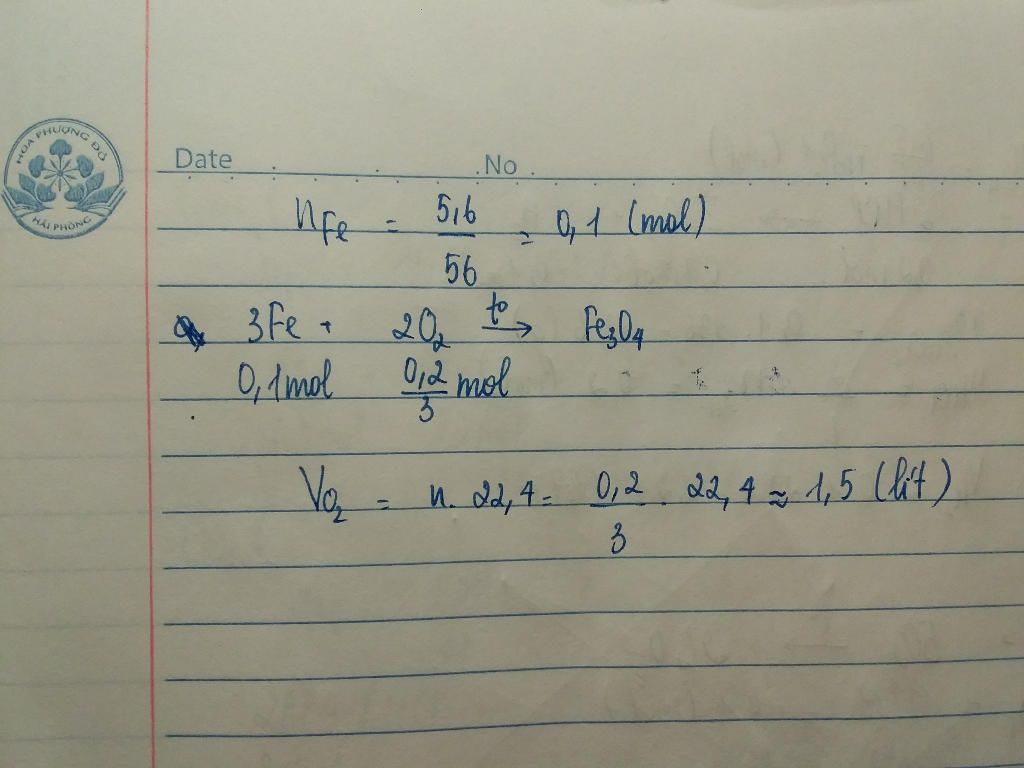 HOA PHƯỢNG ĐỎ
HẢI PHÒNG
Date No
n_Fe = 5,6/56 = 0,1 (mol)
3Fe + 2O₂ →(t°) Fe₃O₄
0,1mol 0,2/3 mol
V_O₂ = n. 22,4 = 0,2/3 . 22,4 ≈ 1,5 (lít)